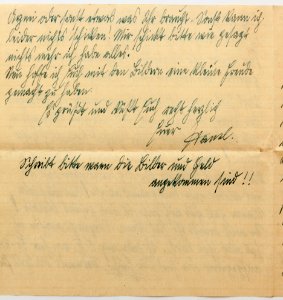 Regen oder sonst etwas was Ihr braucht. Sonst kann ich
leider nichts schicken. Mir schickt bitte wie gesagt
nichts mehr ich habe alles.
Nun hoffe ich Euch mit den Bildern eine kleine Freude
gemacht zu haben.
Es grüsst und küsst Euch recht herzlich
Euer
Schreibt bitte wann die Bilder und Geld
angekommen sind!!